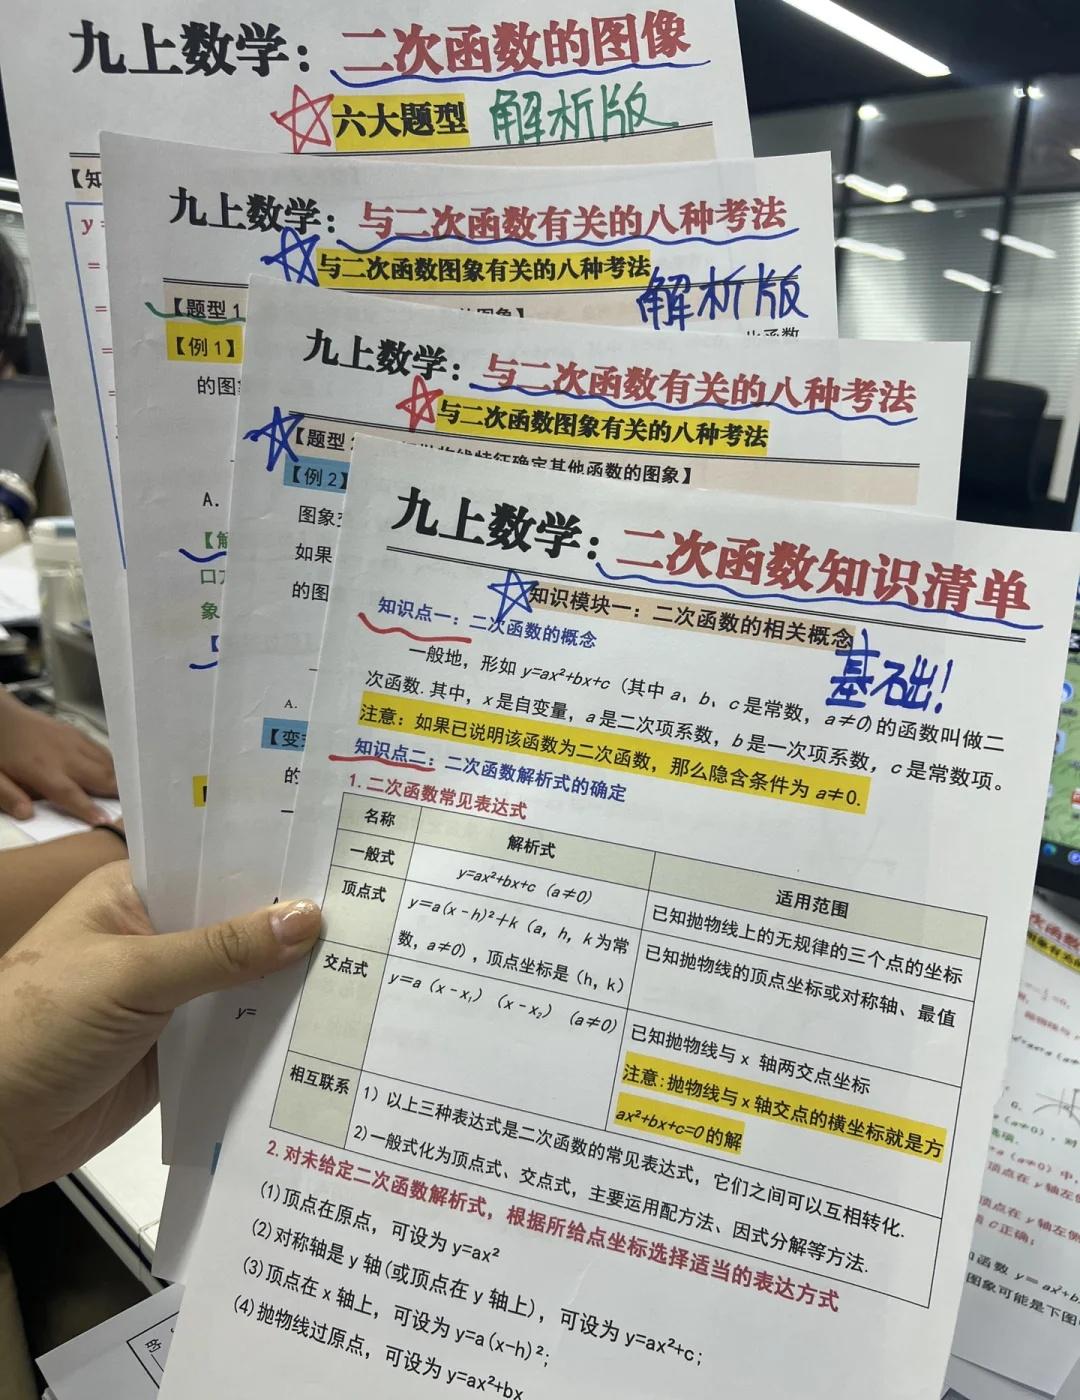 九上数学：二次函数的图像
六大题型 解析版
【知
y
=
=
九上数学：与二次函数有关的八种考法
与二次函数图象有关的八种考法
解析版
【题型1
【例1】
的图
A.
口
象
九上数学：与二次函数有关的八种考法
与二次函数图象有关的八种考法
【题型
特征确定其他函数的图象】
【例2】
图象
如果
的图
A.
【变
的
y=
九上数学：二次函数知识清单
知识模块一：二次函数的相关概念
基础！
知识点一：二次函数的概念
一般地，形如 y=ax²+bx+c（其中 a、b、c 是常数，a≠0）的函数叫做二
次函数.其中，x 是自变量，a 是二次项系数，b 是一次项系数，c 是常数项。
注意：如果已说明该函数为二次函数，那么隐含条件为 a≠0.
知识点二：二次函数解析式的确定
1.二次函数常见表达式
名称 解析式 适用范围
一般式 y=ax²+bx+c（a≠0） 已知抛物线上的无规律的三个点的坐标
顶点式 y=a(x-h)²+k（a,h,k 为常
数，a≠0），顶点坐标是（h,k） 已知抛物线的顶点坐标或对称轴、最值
交点式 y=a（x-x₁）（x-x₂）（a≠0） 已知抛物线与 x 轴两交点坐标
注意:抛物线与 x 轴交点的横坐标就是方
ax²+bx+c=0 的解
相互联系 1）以上三种表达式是二次函数的常见表达式，它们之间可以互相转化.
2)一般式化为顶点式、交点式，主要运用配方法、因式分解等方法.
2.对未给定二次函数解析式，根据所给点坐标选择适当的表达方式
(1)顶点在原点，可设为 y=ax²
(2)对称轴是 y 轴(或顶点在 y 轴上)，可设为 y=ax²+c；
(3)顶点在 x 轴上，可设为 y=a(x-h)²；
(4)抛物线过原点，可设为 y=ax²+bx
顶点在 y 轴左侧
正确；
函数 y=ax²+b
图象可能是下图